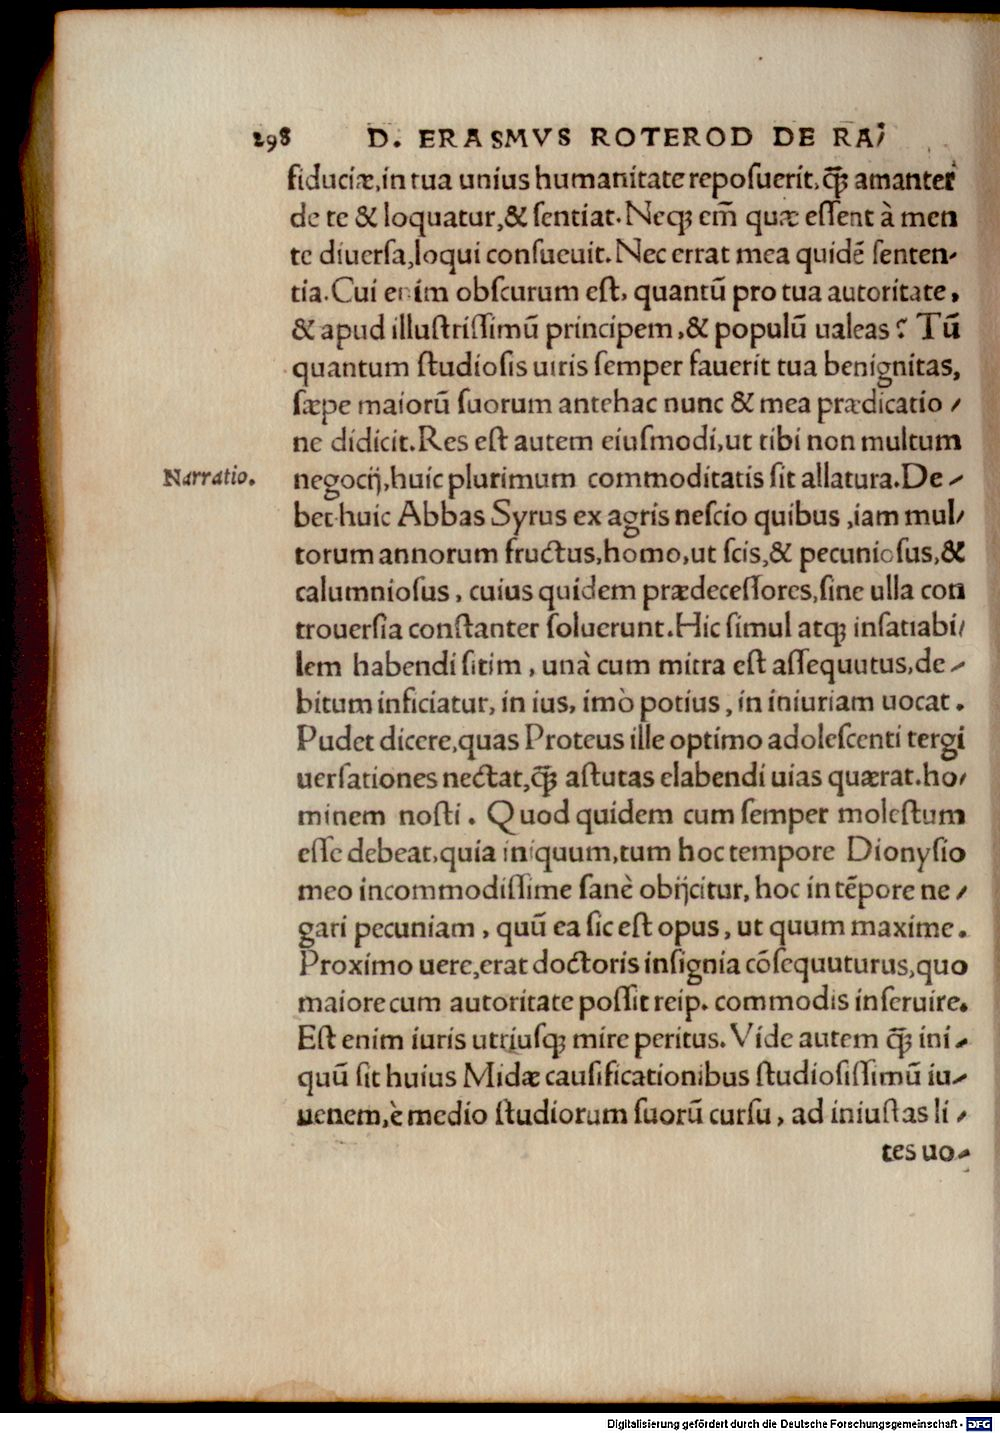 298 D. ERASMVS ROTEROD DE RA/
fiduciæ,in tua unius humanitate reposuerit,q̃ꝫ amanter
de te & loquatur,& sentiat. Neqꝫ em̃ quæ essent à men
te diuersa,loqui consueuit. Nec errat mea quidẽ senten-
tia. Cui enim obscurum est, quantũ pro tua autoritate,
& apud illustrissimũ principem,& populũ ualeas? Tũ
quantum studiosis uiris semper fauerit tua benignitas,
sæpe maiorũ suorum antehac nunc & mea prædicatio /
ne didicit. Res est autem eiusmodi,ut tibi non multum
Narratio.
negocij,huic plurimum commoditatis sit allatura. De-
bet huic Abbas Syrus ex agris nescio quibus ,iam mul/
torum annorum fructus,homo,ut scis,& pecuniosus,&
calumniosus, cuius quidem prædecessores,sine ulla con
trouersia constanter soluerunt. Hic simul atqꝫ insatiabi/
lem habendi sitim, unà cum mitra est assequutus,de-
bitum inficiatur, in ius, imò potius, in iniuriam uocat.
Pudet dicere,quas Proteus ille optimo adolescenti tergi
uersationes nectat,q̃ꝫ astutas elabendi uias quærat.ho/
minem nosti. Quod quidem cum semper molestum
esse debeat,quia iniquum,tum hoc tempore Dionysio
meo incommodissime sanè obijcitur, hoc in tẽpore ne /
gari pecuniam, quũ ea sic est opus, ut quum maxime.
Proximo uere,erat doctoris insignia cõsequuturus,quo
maiore cum autoritate possit reip. commodis inseruire.
Est enim iuris utriusqꝫ mire peritus. Vide autem q̃ꝫ ini-
quũ sit huius Midæ causificationibus studiosissimũ iu-
uenem,è medio studiorum suorũ cursu, ad iniustas li /
tes uo-
Digitalisierung gefördert durch die Deutsche Forschungsgemeinschaft - DFG